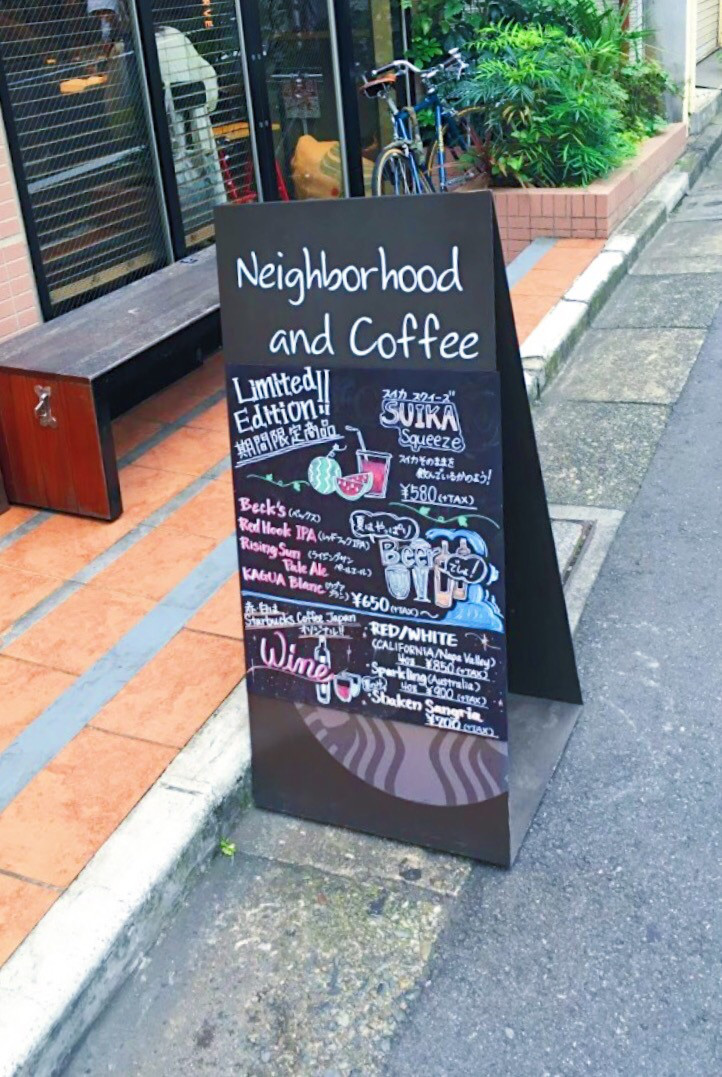 Neighborhood
and Coffee
Limited!!
Edition!!
期間限定商品
スイカ スクイーズ
SUIKA
Squeeze
スイカそのままを
飲んでいるかのよう!
¥580(+TAX)
Beck's(ベックス)
Red Hook IPA(レッドフックIPA)
Rising Sun (ライジングサン
Pale Ale ペールエール)
KAGUA Blanc(カグア ブラン)
夏はやっぱり
Beer
でしょ!
¥650(+TAX)~
Starbucks Coffee Japan
オリジナル!!
Wine
RED/WHITE
(CALIFORNIA/Napa Valley)
4oz ¥850(+TAX)
Sparkling(Australia)
4oz ¥900(+TAX)
Shaken Sangria
¥700(+TAX)